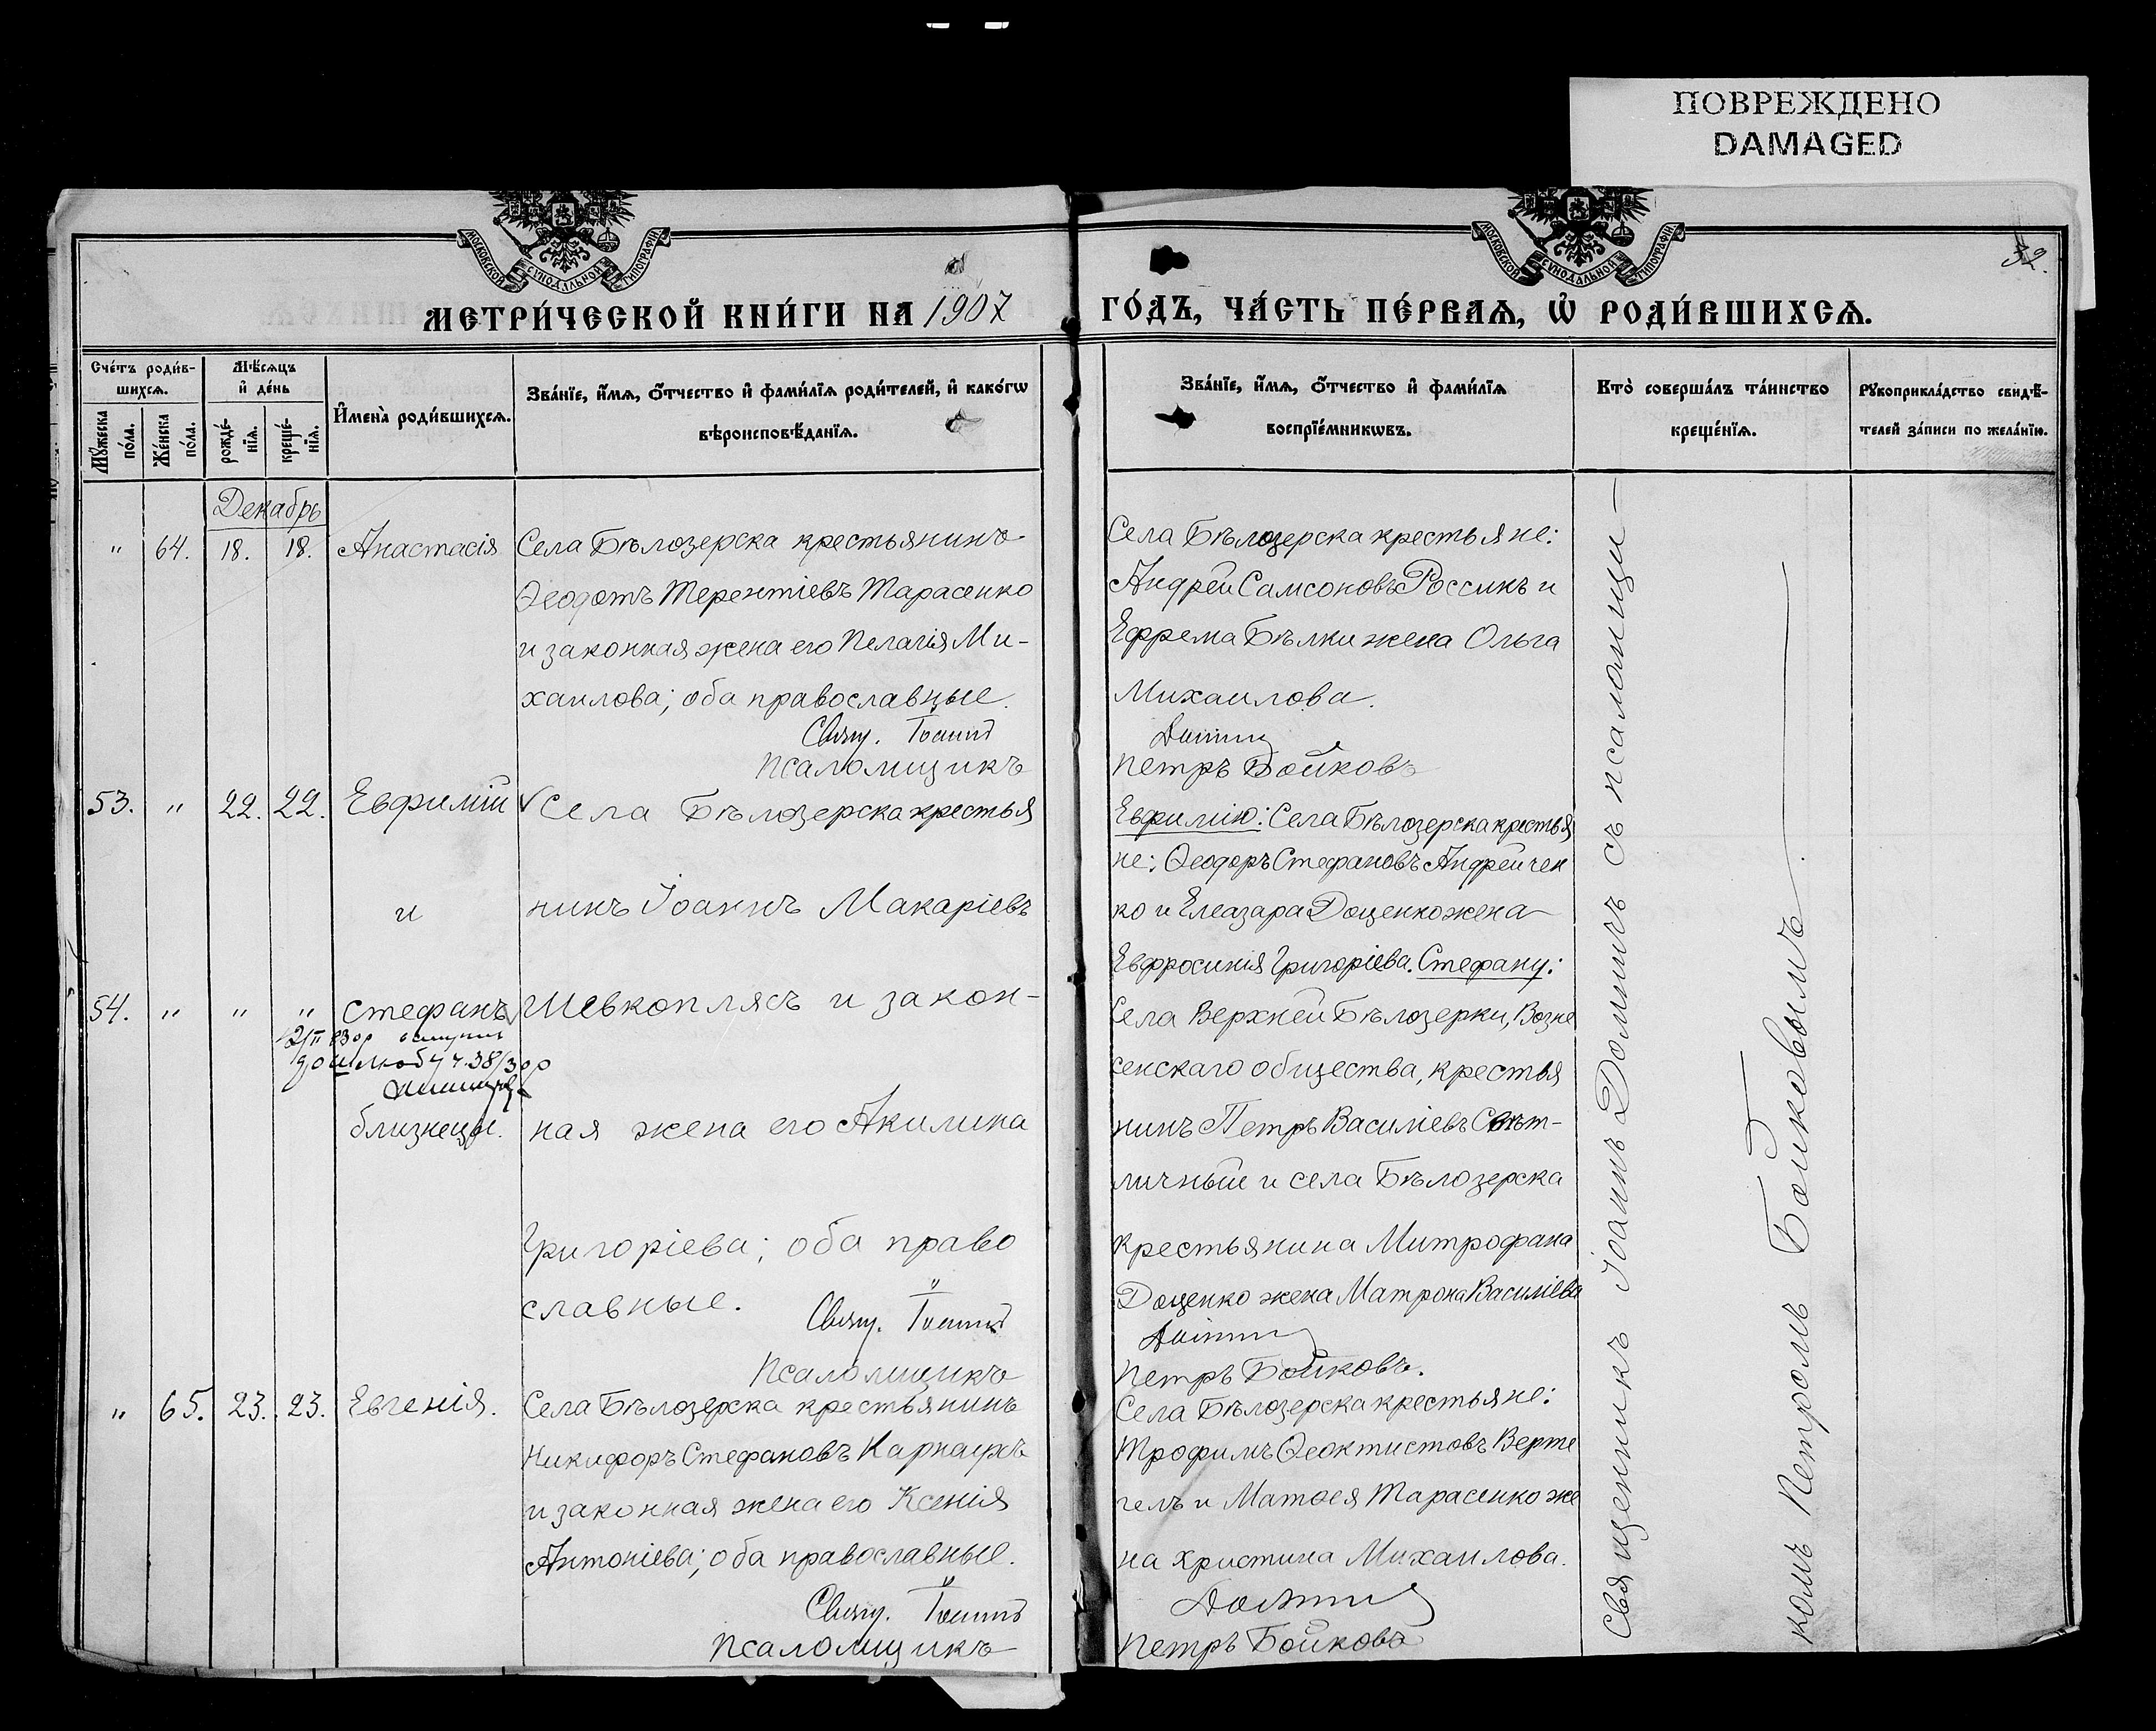 ПОВРЕЖДЕНО
DAMAGED
МОСКОВСКОЙ СѴНОДАЛЬНОЙ ТИПОГРАФІИ
МОСКОВСКОЙ СѴНОДАЛЬНОЙ ТИПОГРАФІИ
32.
МЕТРИ́ЧЕСКОЙ КНИ́ГИ НА 1907
ГО́ДЪ, ЧА́СТЬ ПЕ́РВАѦ, Ѡ҆ РОДИ́ВШИХСѦ.
Сче́тъ роди́в-
шихсѧ.
Мꙋ́жеска по́ла.
Же́нска по́ла.
Мѣ́сѧцъ
и҆ де́нь
рожде́-нїѧ.
креще́-нїѧ.
И҆мена̀ роди́вшихсѧ.
Зва́нїе, и҆́мѧ, ѻ҆́тчество и҆ фами́лїѧ роди́телей, и҆ како́гѡ
вѣроисповѣ́данїѧ.
Зва́нїе, и҆́мѧ, ѻ҆́тчество и҆ фами́лїѧ
воспрїе́мникѡвъ.
Кто̀ соверша́лъ та́инство
креще́нїѧ.
Рꙋкоприкла́дство свидѣ́-
телей за́писи по жела́нїю.
Декабрь
" 64. 18. 18. Анастасія
Села Бѣлозерска крестьянинъ
Ѳеодотъ Терентіевъ Тарасенко
и законная жена его Пелагія Ми-
хаилова; оба православные.
Свящ. Іоаннъ
Псаломщикъ
Села Бѣлозерска крестьяне:
Андрей Самсоновъ Россикъ и
Ефрема Бѣлки жена Ольга
Михаилова.
Петръ Бойковъ
53. " 22. 22. Евфимій
и
54. " " " Стефанъ
близнецы.
Села Бѣлозерска крестья
нинъ Іоаннъ Макаріевъ
Шевкоплясъ и закон-
ная жена его Акилина
Григоріева; оба право
славные.
Свящ. Іоаннъ
Псаломщикъ
Евфимію: Села Бѣлозерска крестья
не: Ѳеодоръ Стефановъ Андрейчен
ко и Елеазара Доценко жена
Евфросинія Григоріева. Стефану:
Села Верхней Бѣлозерки, Возне
сенскаго общества, крестья
нинъ Петръ Василіевъ Свѣт-
личный и села Бѣлозерска
крестьянина Митрофана
Доценко жена Матрона Василіева
Петръ Бойковъ.
" 65. 23. 23. Евгенія.
Села Бѣлозерска крестьянинъ
Никифоръ Стефановъ Карнаухъ
и законная жена его Ксенія
Антоніева; оба православные.
Свящ. Іоаннъ
Псаломщикъ
Села Бѣлозерска крестьяне:
Трофимъ Ѳеоктистовъ Верте
гелъ и Матѳея Тарасенко же
на Христина Михаилова.
Петръ Бойковъ
Священникъ Іоаннъ съ псаломщи-
комъ Петромъ Бойковымъ.